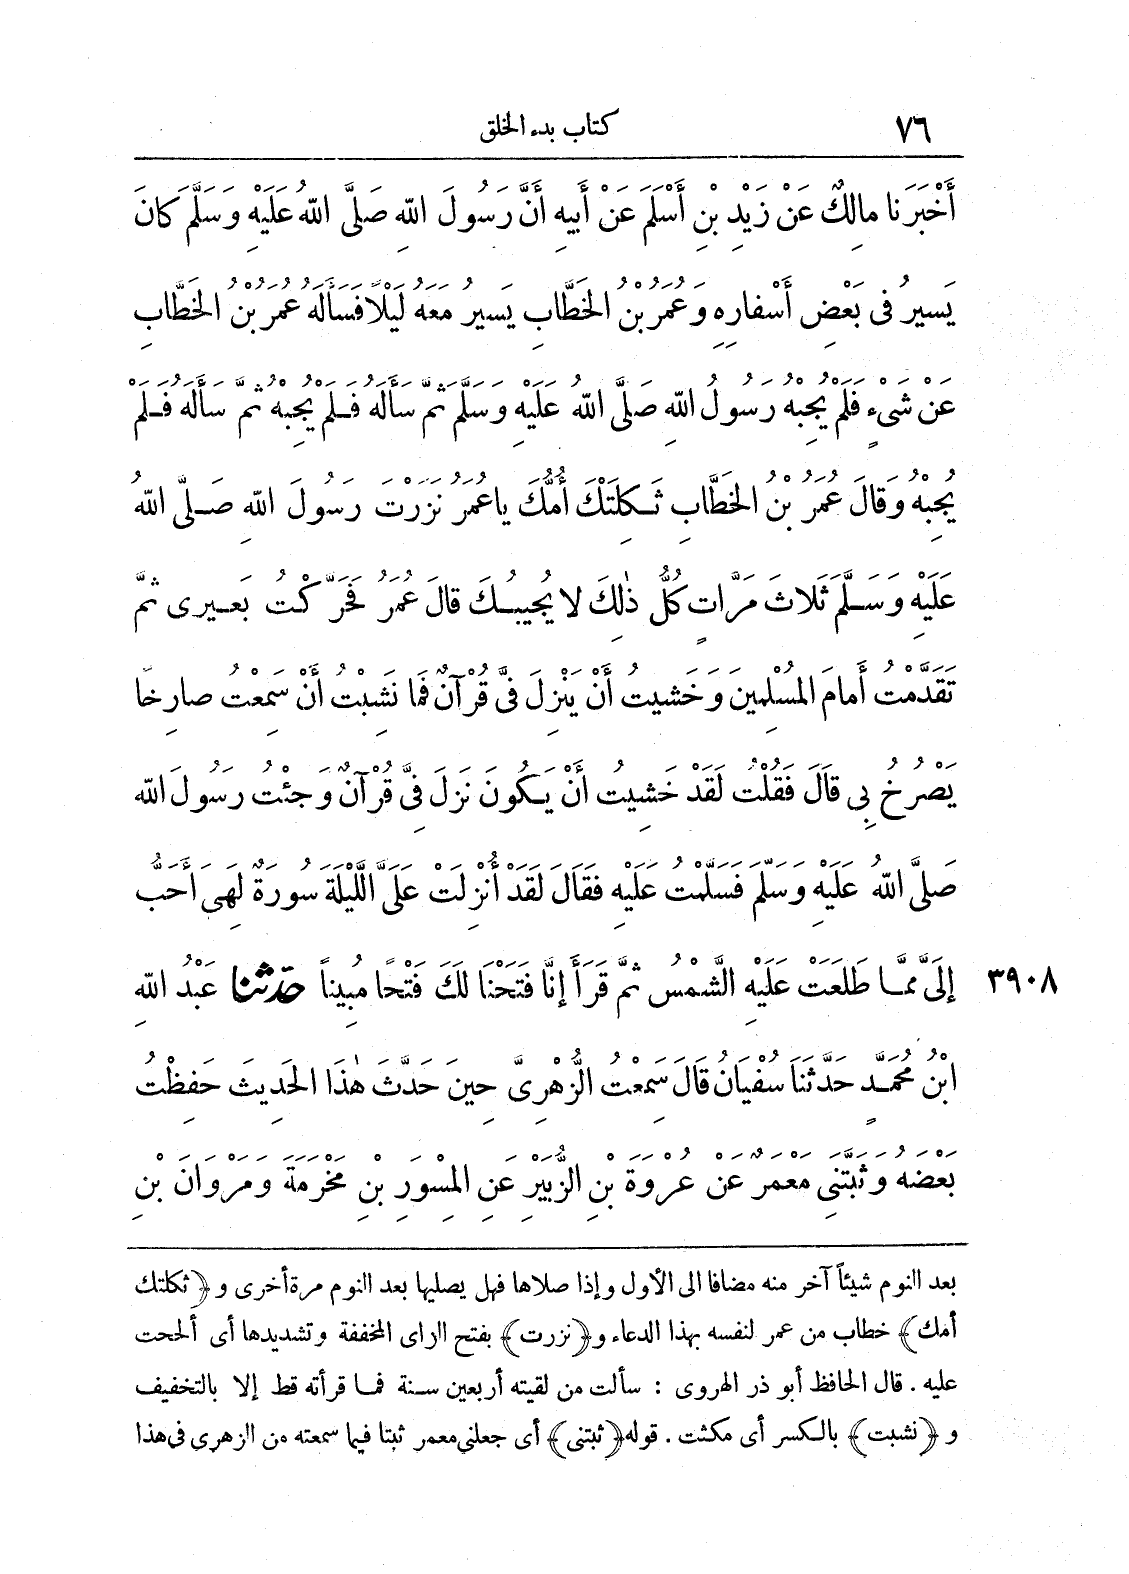 ٧٦ كتاب بدء الخلق
أَخْبَرَنَا مالِكٌ عَنْ زَيْدِ بْنِ أَسْلَمَ عَنْ أَبِيهِ أَنَّ رَسُولَ اللهِ صَلَّى اللهُ عَلَيْهِ وَسَلَّمَ كَانَ
يَسِيرُ فى بَعْضِ أَسْفارِهِ وَعُمَرُ بْنُ الخَطَّابِ يَسِيرُ مَعَهُ لَيْلًا فَسَأَلَهُ عُمَرُ بْنُ الخَطَّابِ
عَنْ شَىْءٍ فَلَمْ يُجِبْهُ رَسُولُ اللهِ صَلَّى اللهُ عَلَيْهِ وَسَلَّمَ ثُمَّ سَأَلَهُ فَلَمْ يُجِبْهُ ثُمَّ سَأَلَهُ فَلَمْ
يُجِبْهُ وَقالَ عُمَرُ بْنُ الخَطَّابِ ثَكِلَتْكَ أُمُّكَ ياعُمَرُ نَزَرْتَ رَسُولَ اللهِ صَلَّى اللهُ
عَلَيْهِ وَسَلَّمَ ثَلاثَ مَرَّاتٍ كُلُّ ذٰلِكَ لا يُجِيبُكَ قالَ عُمَرُ فَحَرَّكْتُ بَعِيرِى ثُمَّ
تَقَدَّمْتُ أَمامَ المُسْلِمِينَ وَخَشِيتُ أَنْ يَنْزِلَ فِىَّ قُرْآنٌ فَمَا نَشِبْتُ أَنْ سَمِعْتُ صارِخًا
يَصْرُخُ بِى قَالَ فَقُلْتُ لَقَدْ خَشِيتُ أَنْ يَكُونَ نَزَلَ فِىَّ قُرْآنٌ وَجِئْتُ رَسُولَ اللهِ
صَلَّى اللهُ عَلَيْهِ وَسَلَّمَ فَسَلَّمْتُ عَلَيْهِ فَقَالَ لَقَدْ أُنْزِلَتْ عَلَىَّ اللَّيْلَةَ سُورَةٌ لَهِىَ أَحَبُّ
إِلَىَّ مِمَّا طَلَعَتْ عَلَيْهِ الشَّمْسُ ثُمَّ قَرَأَ إِنَّا فَتَحْنَا لَكَ فَتْحًا مُبِيناً حَدَّثَنَا عَبْدُ اللهِ ٣٩٠٨
ابْنُ مُحَمَّدٍ حَدَّثَنَا سُفْيَانُ قَالَ سَمِعْتُ الزُّهْرِىَّ حِينَ حَدَّثَ هٰذَا الحَدِيثَ حَفِظْتُ
بَعْضَهُ وَثَبَّتَنِى مَعْمَرٌ عَنْ عُرْوَةَ بْنِ الزُّبَيْرِ عَنِ المِسْوَرِ بْنِ مَخْرَمَةَ وَمَرْوَانَ بْنِ
بعد النوم شيئاً آخر منه مضافا الى الأول وإذا صلاها فهل يصليها بعد النوم مرة أخرى و ﴿ثكلتك
أمك﴾ خطاب من عمر لنفسه بهذا الدعاء و﴿نزرت﴾ بفتح الراى المخففة وتشديدها أى ألححت
عليه . قال الحافظ أبو ذر الهروى : سألت من لقيته أربعين سنة فما قرأته قط إلا بالتخفيف
و ﴿نشبت﴾ بالكسر أى مكثت . قوله ﴿ثبتنى﴾ أى جعلنى معمر ثبتا فيما سمعته من الزهرى فى هذا